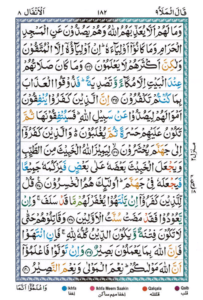 قَالَ الْمَلَأُ ٩ ١٨٤ الْاَنْفَال ٨
وَمَا لَهُمْ اَلَّا يُعَذِّبَهُمُ اللّٰهُ وَهُمْ يَصُدُّوْنَ عَنِ الْمَسْجِدِ
الْحَرَامِ وَمَا كَانُوْٓا اَوْلِيَآءَهٗ ؕ اِنْ اَوْلِيَآؤُهٗٓ اِلَّا الْمُتَّقُوْنَ
وَلٰكِنَّ اَكْثَرَهُمْ لَا يَعْلَمُوْنَ ۝ وَمَا كَانَ صَلَاتُهُمْ
عِنْدَ الْبَيْتِ اِلَّا مُكَآءً وَّتَصْدِيَةً ؕ فَذُوْقُوا الْعَذَابَ
بِمَا كُنْتُمْ تَكْفُرُوْنَ ۝ اِنَّ الَّذِيْنَ كَفَرُوْا يُنْفِقُوْنَ
اَمْوَالَهُمْ لِيَصُدُّوْا عَنْ سَبِيْلِ اللّٰهِ ؕ فَسَيُنْفِقُوْنَهَا ثُمَّ
تَكُوْنُ عَلَيْهِمْ حَسْرَةً ثُمَّ يُغْلَبُوْنَ ؕ۬ وَالَّذِيْنَ كَفَرُوْٓا
اِلٰى جَهَنَّمَ يُحْشَرُوْنَ ۝ لِيَمِيْزَ اللّٰهُ الْخَبِيْثَ مِنَ الطَّيِّبِ
وَيَجْعَلَ الْخَبِيْثَ بَعْضَهٗ عَلٰى بَعْضٍ فَيَرْكُمَهٗ جَمِيْعًا
فَيَجْعَلَهٗ فِيْ جَهَنَّمَ ؕ اُولٰٓئِكَ هُمُ الْخٰسِرُوْنَ ۝ قُلْ
لِّلَّذِيْنَ كَفَرُوْٓا اِنْ يَّنْتَهُوْا يُغْفَرْ لَهُمْ مَّا قَدْ سَلَفَ ۚ وَاِنْ
يَّعُوْدُوْا فَقَدْ مَضَتْ سُنَّتُ الْاَوَّلِيْنَ ۝ وَقَاتِلُوْهُمْ حَتّٰى
لَا تَكُوْنَ فِتْنَةٌ وَّيَكُوْنَ الدِّيْنُ كُلُّهٗ لِلّٰهِ ۚ فَاِنِ انْتَهَوْا
فَاِنَّ اللّٰهَ بِمَا يَعْمَلُوْنَ بَصِيْرٌ ۝ وَاِنْ تَوَلَّوْا فَاعْلَمُوْٓا
اَنَّ اللّٰهَ مَوْلٰىكُمْ ؕ نِعْمَ الْمَوْلٰى وَنِعْمَ النَّصِيْرُ ۝